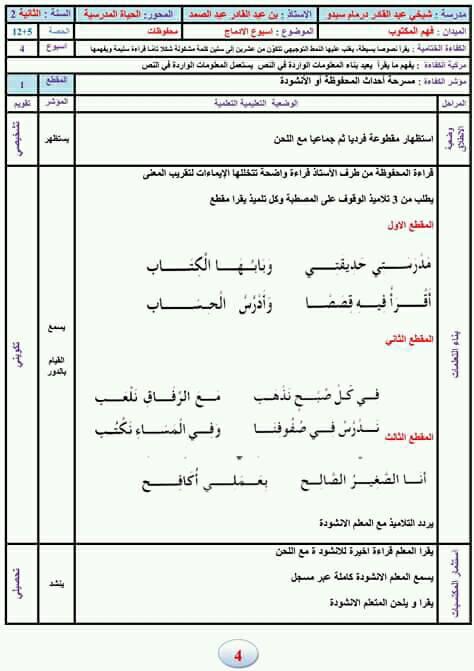 مدرسة : شيخي عبد القادر درمام سيدو الاستاذ : بن عبد القادر عبد الصمد المحور: الحياة المدرسية السنة : الثانية 2
الميدان : فهم المكتوب الموضوع : اسبوع الادماج محفوظات الحصة 12+5
الكفاءة الختامية : يقرأ نصوصا بسيطة، يغلب عليها النمط التوجيهي تتكون من عشرين إلى ستين كلمة مشكولة شكلا تاما قراءة سليمة ويفهمها اسبوع 4
مركبة الكفاءة : يفهم ما يقرأ يعيد بناء المعلومات الواردة في النص يستعمل المعلومات الواردة في النص
مؤشر الكفاءة : مسرحة أحداث المحفوظة أو الأنشودة المقطع 1
المراحل الوضعية التعليمية التعلمية المؤشر تقويم
وضعية الانطلاق استظهار مقطوعة فرديا ثم جماعيا مع اللحن يستظهر تشخيصي
قراءة المحفوظة من طرف الأستاذ قراءة واضحة تتخللها الإيماءات لتقريب المعنى
يطلب من 3 تلاميذ الوقوف على المصطبة وكل تلميذ يقرا مقطع
المقطع الاول
مَدْرَسَــتِي حَديقتِي وَبَابُهَـا الْكِتَــاب
أَقْــرَأُ فيهِ قِصَصًـا وَأَدْرُسُ الْحِسَـاب
المقطع الثاني
فِي كُلّ صُبْـحٍ نَذْهَب مَـعَ الرِّفَـاقِ نَلْعَـب
نَـدْرُسُ فِي صُفُوفِنَـا وَفِي الْمَسَـاءِ نَكْتُـب
المقطع الثالث
أنـا الصَّغيرُ الصَّالـح بِعَمَلِـي أُكَافِـح
يردد التلاميذ مع المعلم الانشودة
بناء التعلمات
يسمع
القيام
بالدور
تكويني
يقرا المعلم قراءة اخيرة للانشودة مع اللحن
يسمع المعلم الانشودة كاملة عبر مسجل
يقرا و يلحن المتعلم الانشودة
استثمار المكتسبات
ينشد
تحصيلي
4